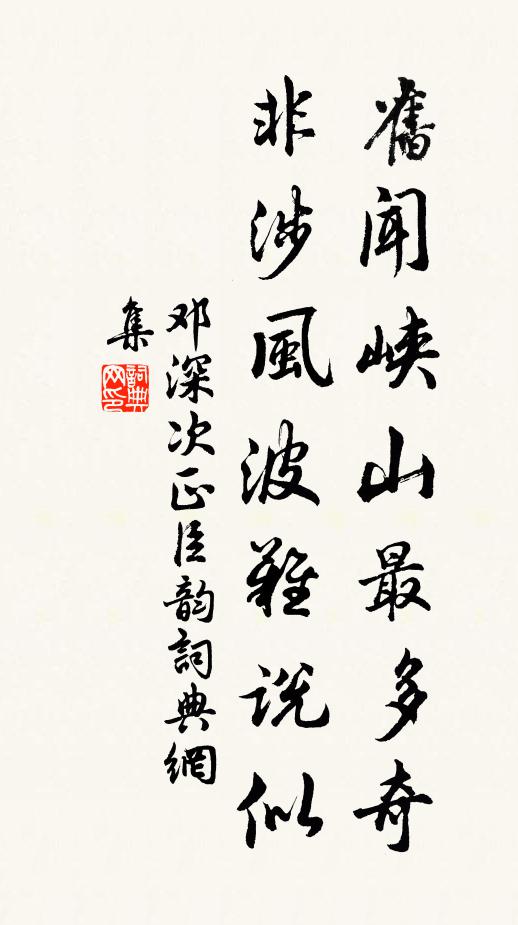 舊聞峽山最多奇
非涉風波難說似
邓深次正臣韵詞典網
集
詞典网印